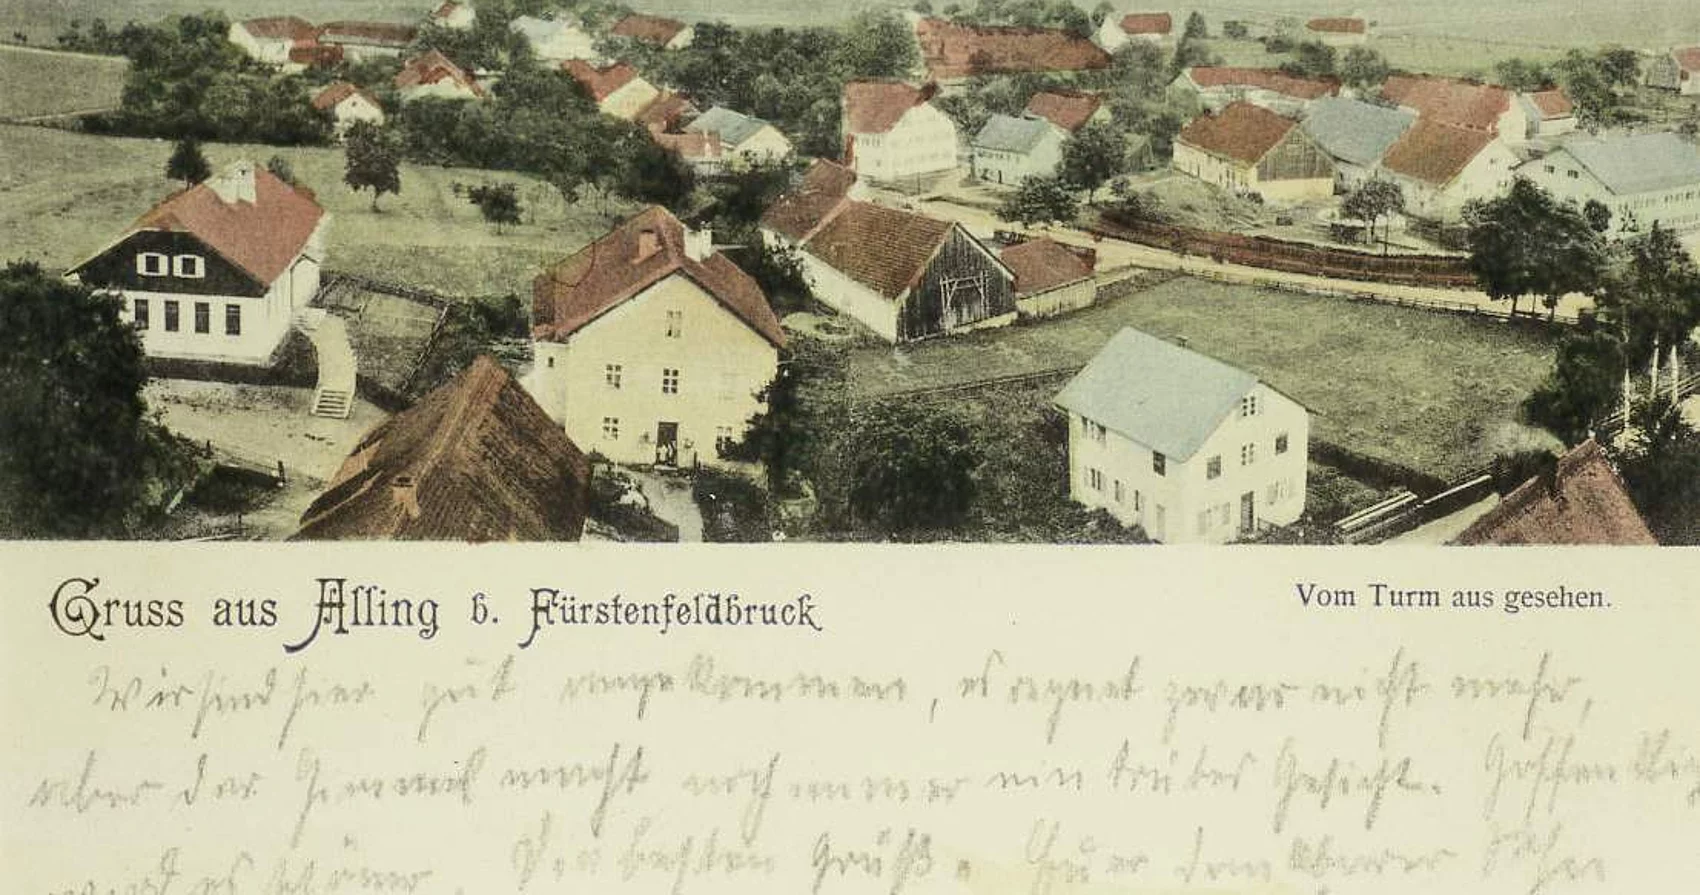 Gruss aus Alling b. Fürstenfeldbruck
Vom Turm aus gesehen.
Wir sind hier gut angekommen, es regnet zwar nicht mehr,
aber der Himmel macht noch immer ein trübes Gesicht. Hoffentlich
wird es schöner. Die besten Grüße.